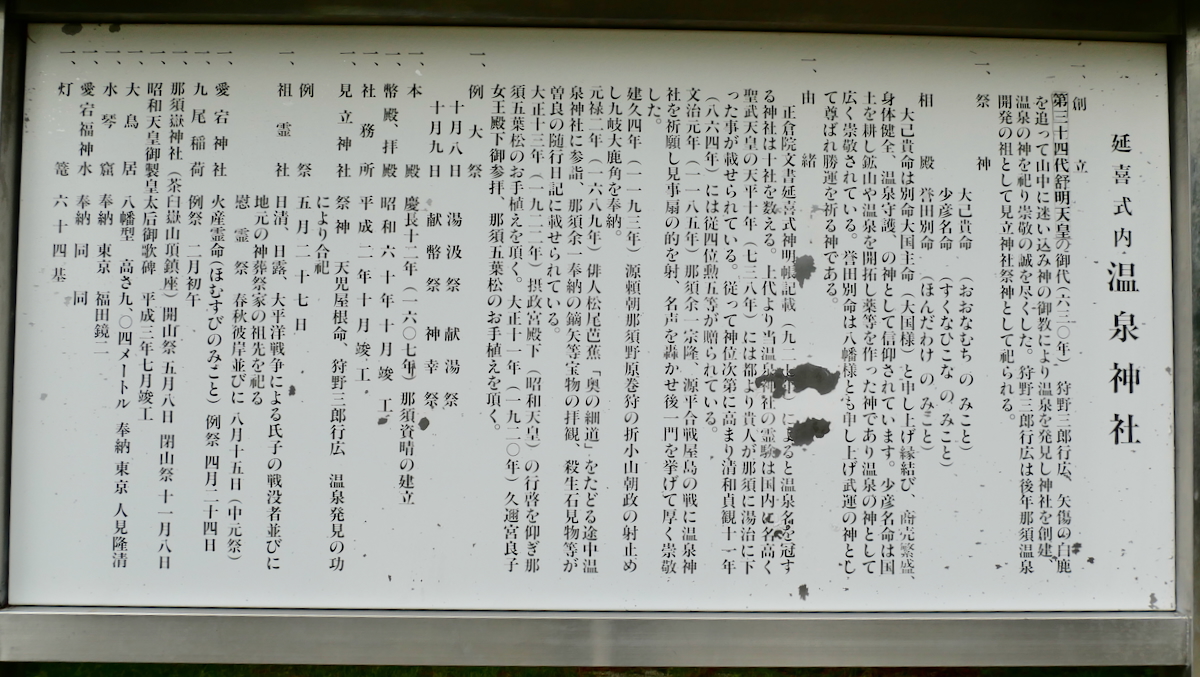 延喜式内 温泉神社
一、創立
第三十四代舒明天皇の御代(六三〇年) 狩野三郎行広、矢傷の白鹿
を追って山中に迷い込み神の御教により温泉を発見し神社を創建、
温泉の神を祀り崇敬の誠を尽くした。狩野三郎行広は後年那須温泉
開発の祖として見立神社祭神として祀られる。
一、祭神
大己貴命 (おおなむち の みこと)
少彦名命 (すくなひこな の みこと)
相殿 誉田別命 (ほんだわけ の みこと)
大己貴命は別命大国主命(大国様)と申し上げ縁結び、商売繁盛、
身体健全、温泉守護、の神として信仰されています。少彦名命は国
土を耕し鉱山や温泉を開拓し薬等を作った神であり温泉の神として
広く崇敬されている。誉田別命は八幡様とも申し上げ武運の神とし
て尊ばれ勝運を祈る神である。
一、由緒
正倉院文書延喜式神明帳記載(九二七年)によると温泉名を冠す
る神社は十社を数える。上代より当温泉神社の霊験は国内に名高く
聖武天皇の天平十年(七三八年)には都より貴人が那須に湯治に下
った事が載せられている。従って神位次第に高まり清和貞観十一年
(八六四年)には従四位勲五等が贈られている。
文治元年(一一八五年)那須余一宗隆、源平合戦屋島の戦に温泉神
社を祈願し見事扇の的を射、名声を轟かせ後一門を挙げて厚く崇敬
した。
建久四年(一一九三年)源頼朝那須野原巻狩の折小山朝政の射止め
し九岐大鹿角を奉納。
元禄二年(一六八九年)俳人松尾芭蕉「奥の細道」をたどる途中温
泉神社に参詣、那須余一奉納の鏑矢等宝物の拝観、殺生石見物等が
曽良の随行日記に載せられている。
大正十三年(一九二二年)摂政宮殿下(昭和天皇)の行啓を仰ぎ那
須五葉松のお手植えを頂く。大正十一年(一九二〇年)久邇宮良子
女王殿下御参拝、那須五葉松のお手植えを頂く。
一、例大祭
十月八日 湯汲祭 献湯祭
十月九日 献幣祭 神幸祭
一、本殿 慶長十二年(一六〇七年)那須資晴の建立
一、幣殿、拝殿 昭和六十年十月竣工
一、社務所 平成二年十月竣工
一、見立神社 祭神 天児屋根命、狩野三郎行広 温泉発見の功
により合祀
例祭 五月二十七日
一、祖霊社 日清、日露、大平洋戦争による氏子の戦没者並びに
地元の神葬祭家の祖先を祀る
慰霊祭 春秋彼岸並びに 八月十五日(中元祭)
一、愛宕神社 火産霊命(ほむすびのみこと) 例祭 四月二十四日
一、九尾稲荷 例祭 二月初午
一、那須嶽神社(茶臼嶽山頂鎮座)開山祭 五月八日 閉山祭 十一月八日
一、昭和天皇御製皇太后御歌碑 平成三年七月竣工
一、大鳥居 八幡型 高さ九、〇四メートル 奉納 東京 人見隆清
一、水琴窟 奉納 東京 福田鏡二
一、愛宕福神水 奉納 同 同
一、灯篭 六十四基